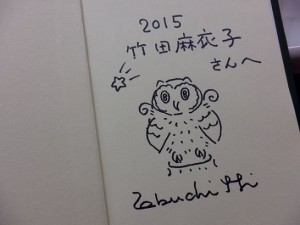 2015
竹田麻衣子
さんへ